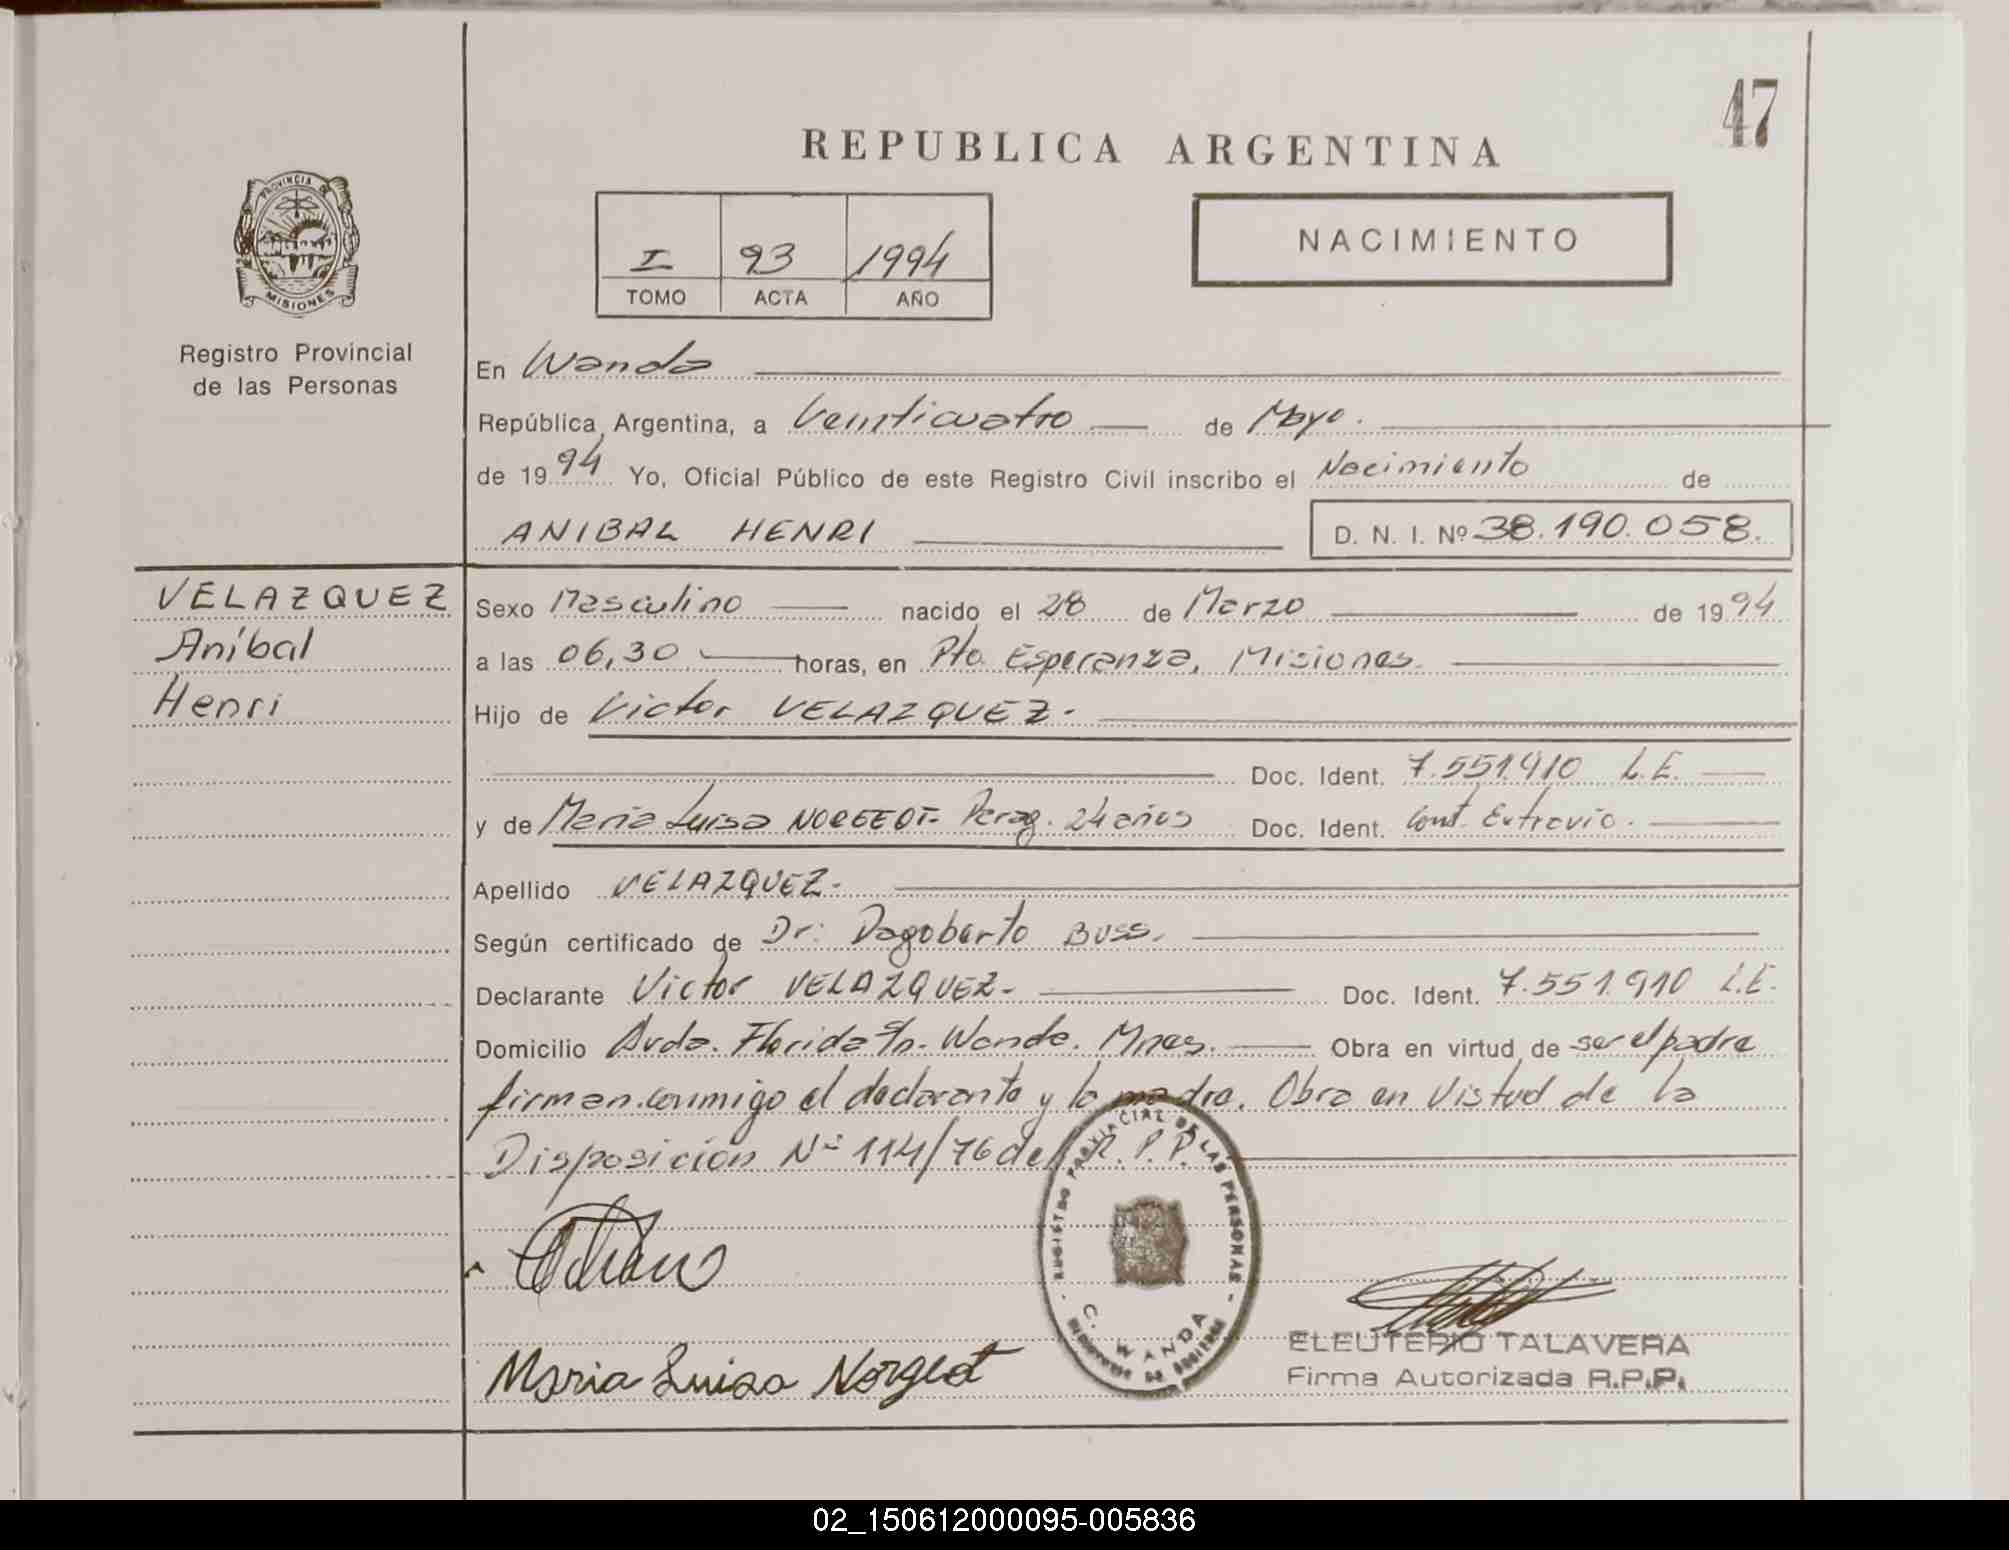 47
REPUBLICA ARGENTINA
PROVINCIA DE
MISIONES
Registro Provincial
de las Personas
I 93 1994
TOMO ACTA AÑO
NACIMIENTO
En Wanda
República Argentina, a Veinticuatro de Mayo.
de 1994 Yo, Oficial Público de este Registro Civil inscribo el Nacimiento de
ANIBAL HENRI D. N. I. Nº 38.190.058.
VELAZQUEZ
Aníbal
Henri
Sexo Masculino nacido el 28 de Marzo de 1994
a las 06,30 horas, en Pto. Esperanza, Misiones.
Hijo de Victor VELAZQUEZ.
Doc. Ident. 7.551.910 L.E.
y de Maria Luisa Parag. 24 años Doc. Ident. Cont. Extravio.
Apellido VELAZQUEZ.
Según certificado de Dr: Dagoberto BUSS.
Declarante Victor VELAZQUEZ- Doc. Ident. 7.551.910 L.E.
Domicilio Avda. Florida s/n. Wanda. Mnes. Obra en virtud de ser el padre
firman conmigo el declarante y la madre. Obra en Vistud de la
Disposición Nº 114/76 del R.P.P.
REGISTRO PROVINCIAL DE LAS PERSONAS
C. WANDA
Maria Luisa Norgeot
ELEUTERIO TALAVERA
Firma Autorizada R.P.P.
02_150612000095-005836